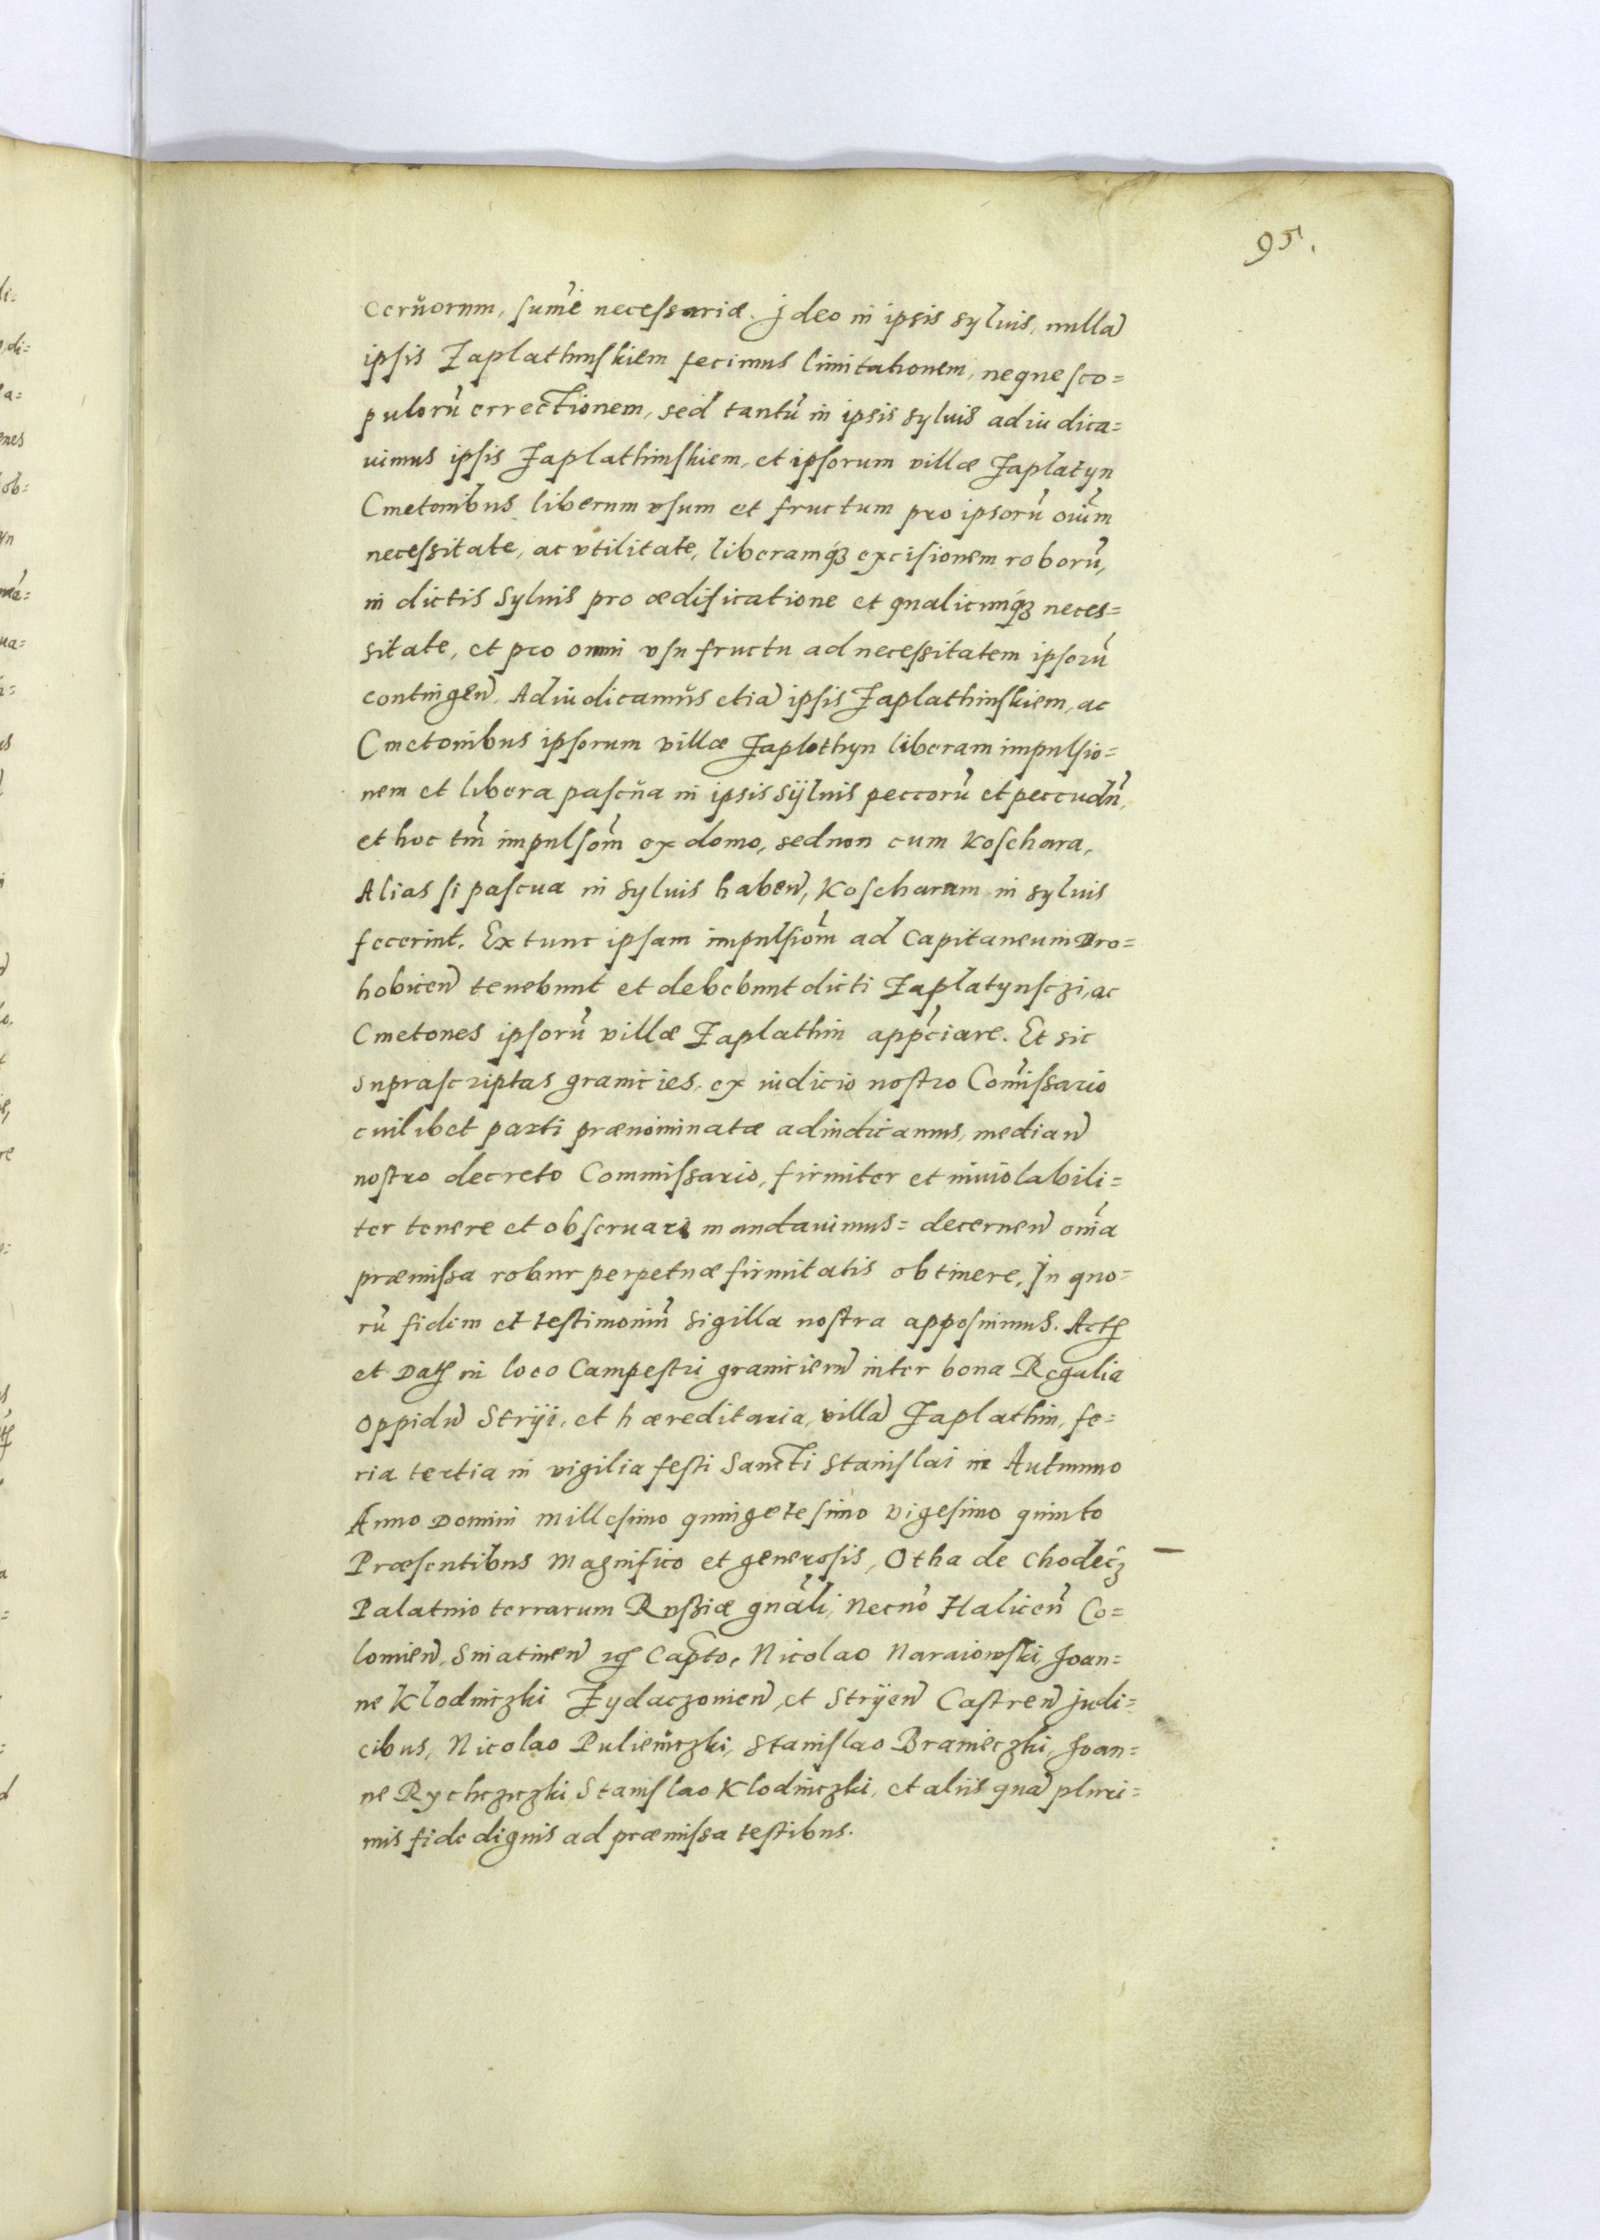 95.
ceruorum, sum̃e necessariæ. Ideo in ipsis syluis, nullã
ipsis Zaplathinskiem fecimus limitationem, neque sco=
pulorũ errectionem, sed tantũ in ipsis syluis adiudica=
uimus ipsis Zaplathinskiem, et ipsorum villæ Zaplatyn
Cmetonibus liberum vsum et fructum pro ipsorũ oiũm
necessitate, ac vtilitate, liberamq́ꝫ excisionem roborũ,
in dictis Syluis pro ædificatione et qualicunq́ꝫ neces=
sitate, et pro omni vsu fructu ad necessitatem ipsorũ
contingeñ. Adiudicamus etiã ipsis Zaplathinskiem, ac
Cmetonibus ipsorum villæ Zaplothyn liberam impulsio=
nem et libera pascua in ipsis Sÿluis peccorũ et peccudũ,
et hoc tm̃ impulsom̃ ex domo, sed non cum Koschara,
Alias si pascua in Syluis habeñ, Koscharam in syluis
fecerint. Ex tunc ipsam impulsiom̃ ad Capitaneum Dro=
hobiceñ tenebunt et debebunt dicti Zaplatynsczi, ac
Cmetones ipsorũ villæ Zaplathin app̃ciare. Et sic
suprascriptas granicies, ex iudicio nostro Com̃issario
cuilibet parti prænominatæ adiudicamus, mediañ
nostro decreto Commissario, firmiter et inuiolabili=
ter tenere et obseruari mandauimus= decerneñ om̃a
præmissa robur perpetuæ firmitatis obtinere, In quo=
rũ fidem et testimoniũ sigilla nostra apposuimus. Actꝭ
et Datꝭ in loco Campestri granicierũ inter bona Regalia
oppidũ Stryi, et hæreditaria, villã Zaplathin, fe=
ria tertia in vigilia festi Sancti Stanislai in Autumno
Anno Domini millesimo quingētesimo vigesimo quinto
Præsentibus Magnifico et generosis, Otha de Chodecꝫ
Palatino terrarum Russiæ gnãli, Necnõ Haliceñ Co=
lomieñ, Sniatineñ Capto, Nicolao Naraiowski, Joan=
ne Klodniczki Zydaczouieñ, et Strÿeñ Castreñ judi=
cibus, Nicolao Puliemczki, Stanislao Branieczki, Joan=
ne Rychczczki, Stanislao Klodniczki, et aliis quã pluri=
mis fide dignis ad præmissa testibus.